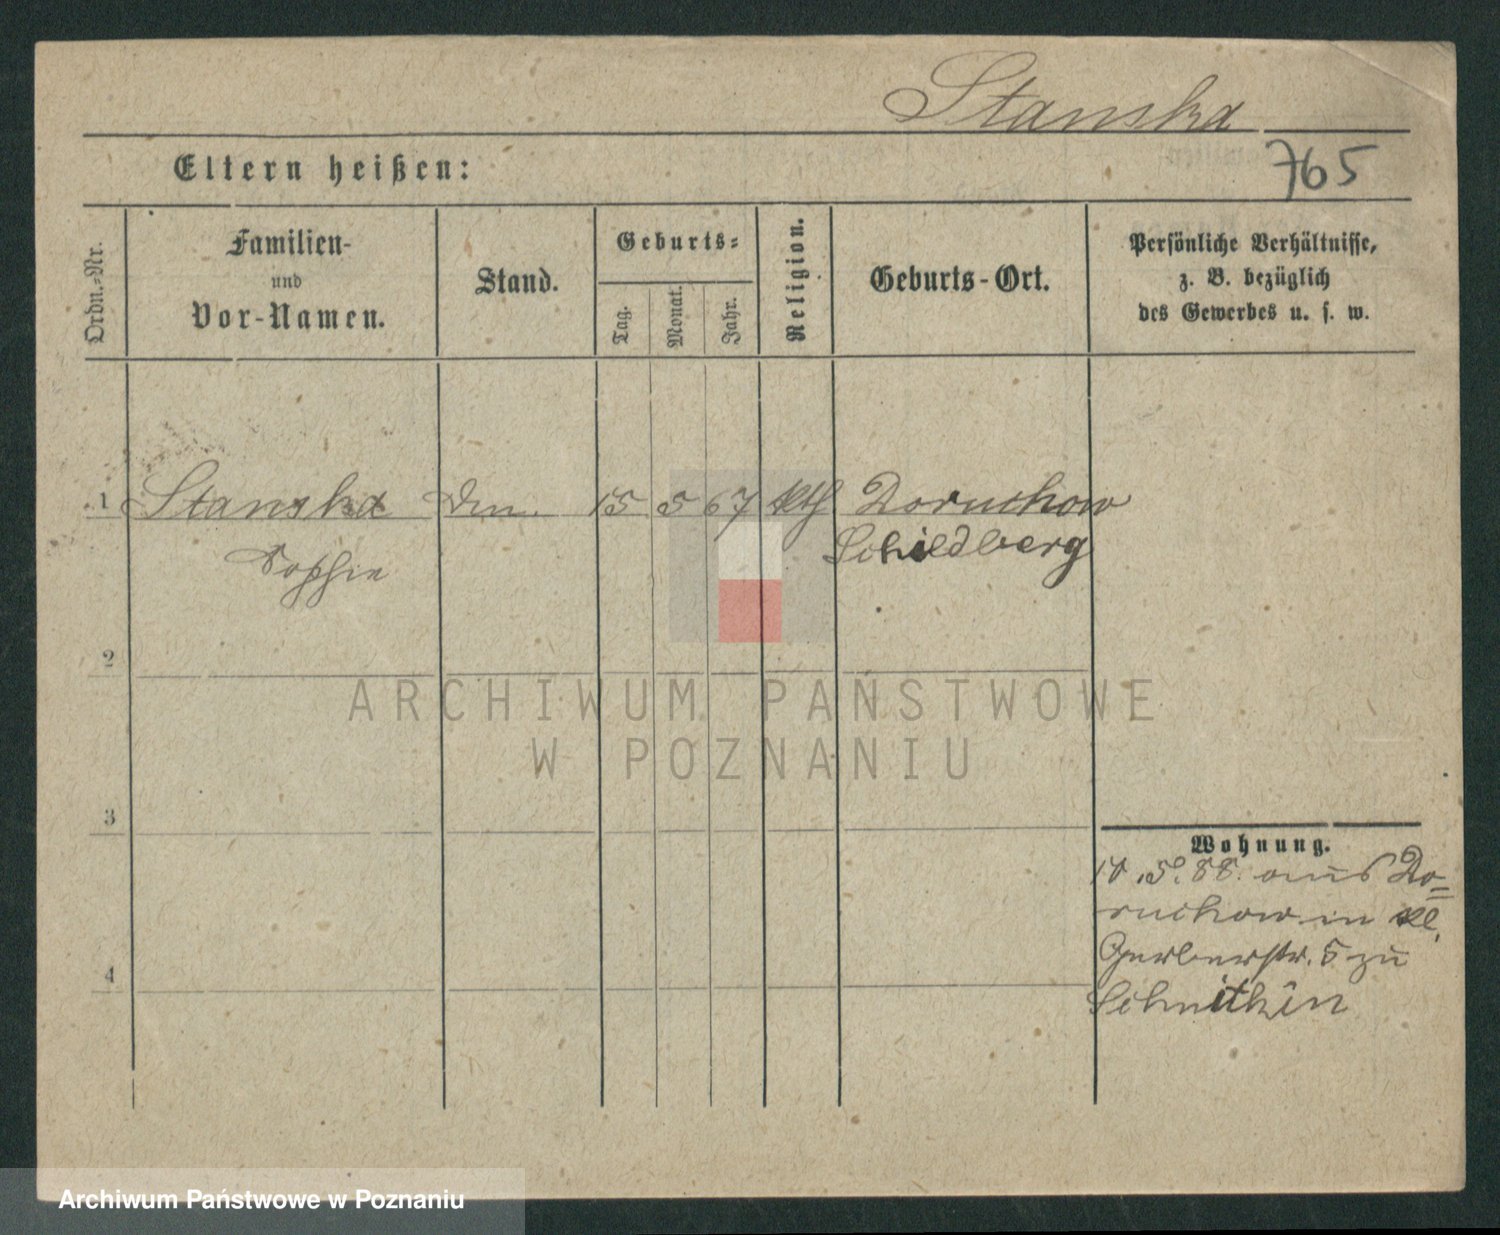 Stanska
Eltern heißen:
765
Ordn.-Nr.
Familien-
und
Vor-Namen.
Stand.
Geburts=
Tag.
Monat.
Jahr.
Religion.
Geburts-Ort.
Persönliche Verhältnisse,
z. B. bezüglich
des Gewerbes u. s. w.
1 Stanska 15 5 67 kth Doruchow
Sophie Schildberg
2
ARCHIWUM PAŃSTWOWE
W POZNANIU
3
Wohnung.
5. 88. aus Do=
ruchow in Kl.
Gerberstr. 5 zu
4
Archiwum Państwowe w Poznaniu